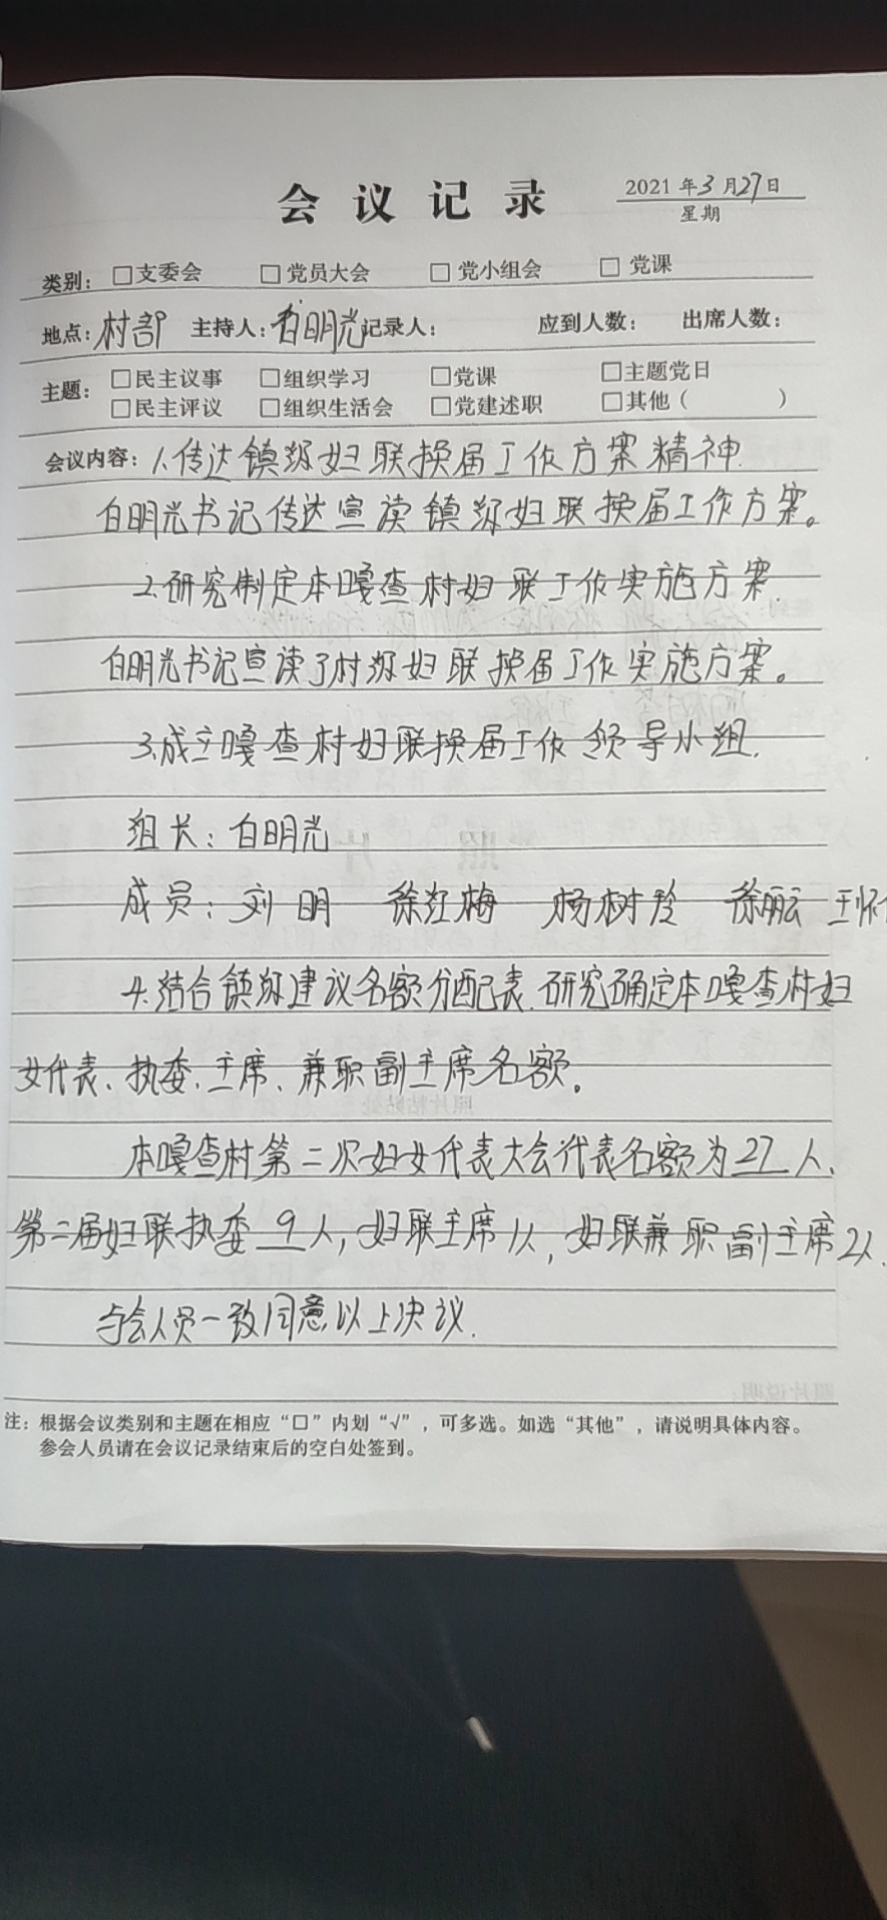 会议记录
2021年3月27日
星期
类别：□支委会 □党员大会 □党小组会 □党课
地点：村部 主持人：白明光 记录人： 应到人数： 出席人数：
主题：□民主议事 □组织学习 □党课 □主题党日
□民主评议 □组织生活会 □党建述职 □其他（ ）
会议内容：1.传达镇级妇联换届工作方案精神.
白明光书记传达宣读镇级妇联换届工作方案。
2.研究制定本嘎查村妇联工作实施方案.
白明光书记宣读了村级妇联换届工作实施方案。
3.成立嘎查村妇联换届工作领导小组.
组长：白明光
成员：刘明 徐红梅 杨树玲 徐丽云 王怀
4.结合镇级建议名额分配表.研究确定本嘎查村妇
女代表、执委、主席、兼职副主席名额。
本嘎查村第二次妇女代表大会代表名额为27人、
第二届妇联执委9人，妇联主席1人，妇联兼职副主席2人.
与会人员一致同意以上决议.
注：根据会议类别和主题在相应“□”内划“√”，可多选。如选“其他”，请说明具体内容。
参会人员请在会议记录结束后的空白处签到。